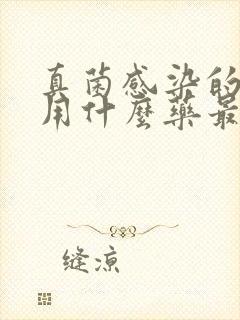 真菌感染的
用什麼藥最
缝凉